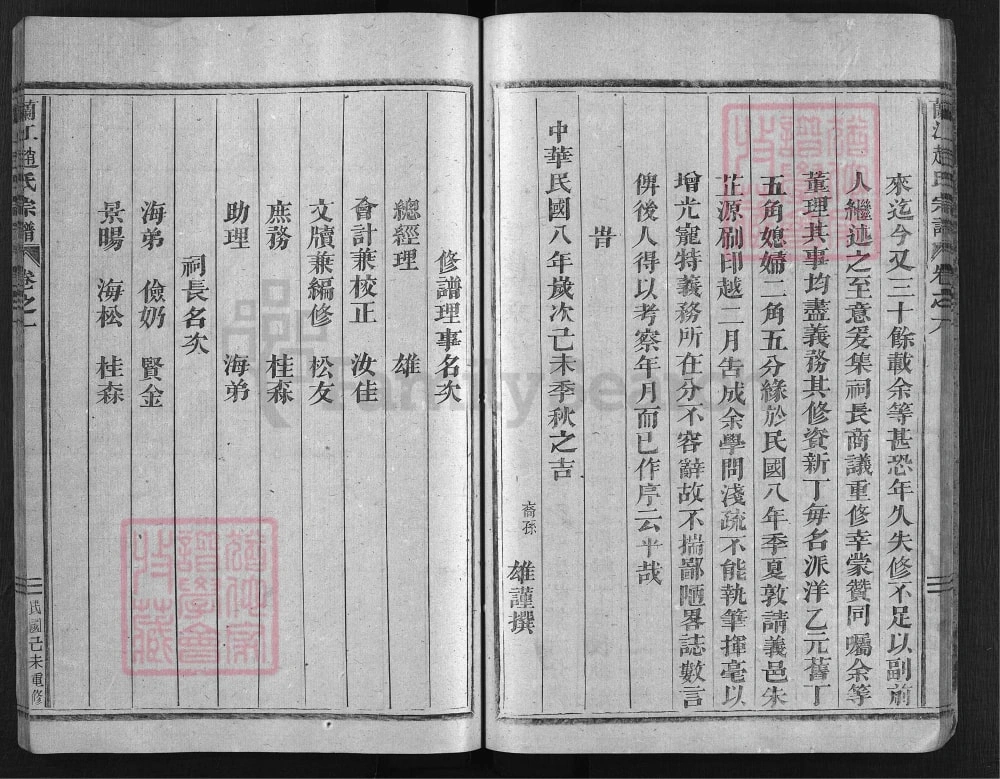 蘭江趙氏宗譜 卷之一
來迄今又三十餘載余等甚恐年久失修不足以副前
人繼述之至意爰集祠長商議重修幸蒙贊同囑余等
董理其事均盡義務其修資新丁每名派洋乙元舊丁
五角媳婦二角五分緣於民國八年季夏敦請義邑朱
芷源刷印越二月告成余學問淺疏不能執筆揮毫以
增光寵特義務所在分不容辭故不揣鄙陋畧誌數言
俾後人得以考察年月而已作序云乎哉
旹
中華民國八年歲次己未季秋之吉
裔孫 雄謹撰
修譜理事名次
總經理 雄
會計兼校正 汝佳
文牘兼編修 松友
庶務 桂森
助理 海弟
祠長名次
海弟 儉奶 賢金
景暘 海松 桂森
蘭江趙氏宗譜 卷之一 民國己未重修